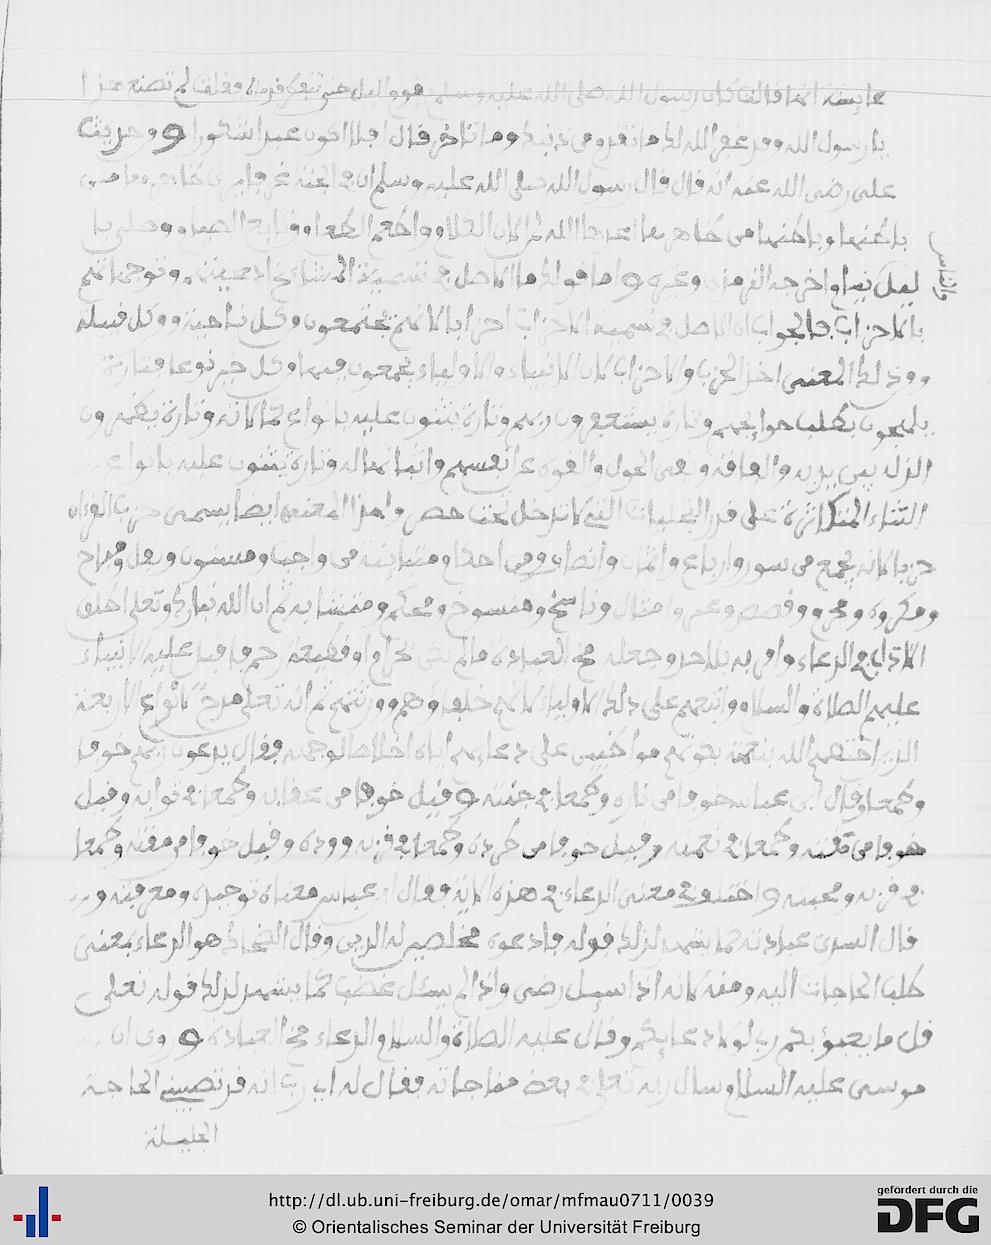 عايشة انها قالت كان رسول الله صلى الله عليه وسلم يقوم اليل حتى تتفطر قدماه فقلت لم تصنع هذا
يا رسول الله وقد غفر الله لك ما تقدم من ذنبك وما تأخر قال افلا اكون عبدا شكورا وحديث
على رضى الله عنه انه قال قال رسول الله صلى الله عليه وسلم ان في الجنة غرفا يرى ظاهرها من
باطنها وباطنها من ظاهرها اعدها الله لمن الان الكلام واطعم الطعام وتابع الصيام وصلى با
لعل نيام اخرجه الترمذي وغيره واما قولك ما الاصل في تسمية المشائخ ادعيتهم وتوجهاتهم
والناس
بالاحزاب فالجواب ان الاصل في تسمية الاحزاب احزابا لانهم يجتمعون وكل ناحية وكل قبيلة
ومن ذلك المعنى اخذ الحزب والاحزاب لان الانبياء والاولياء يجمعون فيها وكل خير نوعا فتارة
يلهجون بطلب حوايجهم وتارة يستغفرون ربهم وتارة يثنون عليه بانواع كمالاته وتارة يظهرون
الذل بين يديه والفاقة ونفى الحول والقوة عن انفسهم واثباتها له وتارة يثنون عليه بانواع
الثناء المتكاثرة على قدر التجليات التى لا تدخل تحت حصر ولهذا المعنى ايضا يسمى حزب القرآن
حزبا لانه يجمع من سور وارباع واثمان وانصاف ومن احكام متباينة من واجب ومسنون ونفل ومباح
ومكروه ومحرم وقصص وعبر وامثال وناسخ ومنسوخ ومحكم ومتشابه ثم ان الله تبارك وتعلى اطلق
الاذن في الدعاء وامر به بلا حد وجعله مخ العبادة ما لم يكن بحرام او قطيعة رحم فاقبل عليه الانبياء
عليهم الصلاة والسلام واتبعهم على ذلك الاولياء لانهم خلفاؤهم وورثتهم ثم انه تعلى مدح الانواع الاربعة
الذين اختصهم الله بنعمته بقوتهم مواظبين على دعاءهم اياه اخلاصا لوجهه فقال يدعون ربهم خوفا
وطمعا وقال ابن عباس خوفا من ناره وطمعا في جنته وقيل خوفا من عقابه وطمعا في ثوابه وقيل
خوفا من نقمته وطمعا في نعمته وقيل خوفا من طرده وطمعا في قربه ووده وقيل خوفا من مقته وطمعا
في قربه ومحبته واختلف في معنى الدعاء في هذه الاية فقال ابن عباس معناه توحيده ومعرفته و
قال السدى عبادته كما يشهد لذلك قوله فادعوه مخلصين له الدين وقال الضحاك هو الدعاء بمعنى
طلب الحاجات اليه ومنه لانه اذا سيل رضى واذا لم يسئل غضب كما يشهد لذلك قوله تعلى
قل ما يعبؤ بكم ربى لولا دعاؤكم وقال عليه الصلاة والسلام الدعاء مخ العبادة وروى ان
موسى عليه السلام سال ربه تعلى في بعض مناجاته فقال له اى رب انه قد تصيبنى الحاجة
الجليلة
http://dl.ub.uni-freiburg.de/omar/mfmau0711/0039
© Orientalisches Seminar der Universität Freiburg
gefördert durch die
DFG